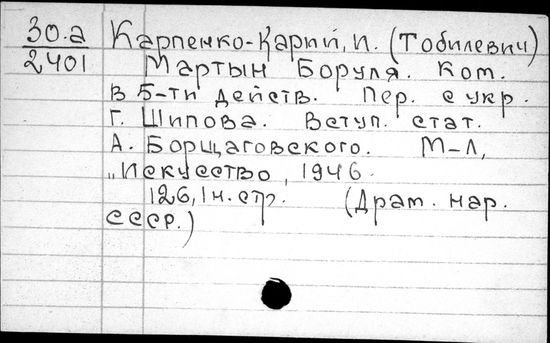 30.а Карпенко-Карий, И. (Тобилевич)
2401 Мартын Боруля. Ком.
в 5-ти действ. Пер. с укр.
Г. Шипова. Вступ. стат.
А. Борщаговского. М-Л,
„Искусство, 1946.
126, 1 н. стр. (Драм. нар.
СССР.)